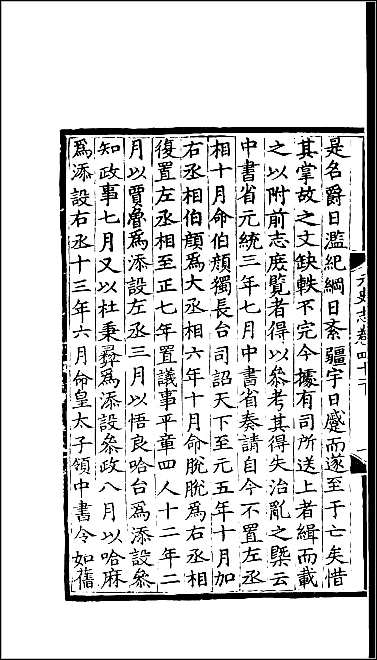 是名爵日濫紀綱日紊疆宇日蹙而遂至于亡矣惜
其掌故之文缺軼不完今據有司所送上者緝而載
之以附前志庻覽者得以參考其得失治亂之槩云
中書省元統三年七月中書省奏請自今不置左丞
相十月命伯顔獨長台司詔天下至元五年十月加
右丞相伯顔爲大丞相六年十月命脫脫爲右丞相
復置左丞相至正七年置議事平章四人十二年二
月以賈魯爲添設左丞三月以悟良哈台爲添設參
知政事七月又以杜秉彞爲添設參政八月以哈麻
爲添設右丞十三年六月命皇太子領中書令如舊